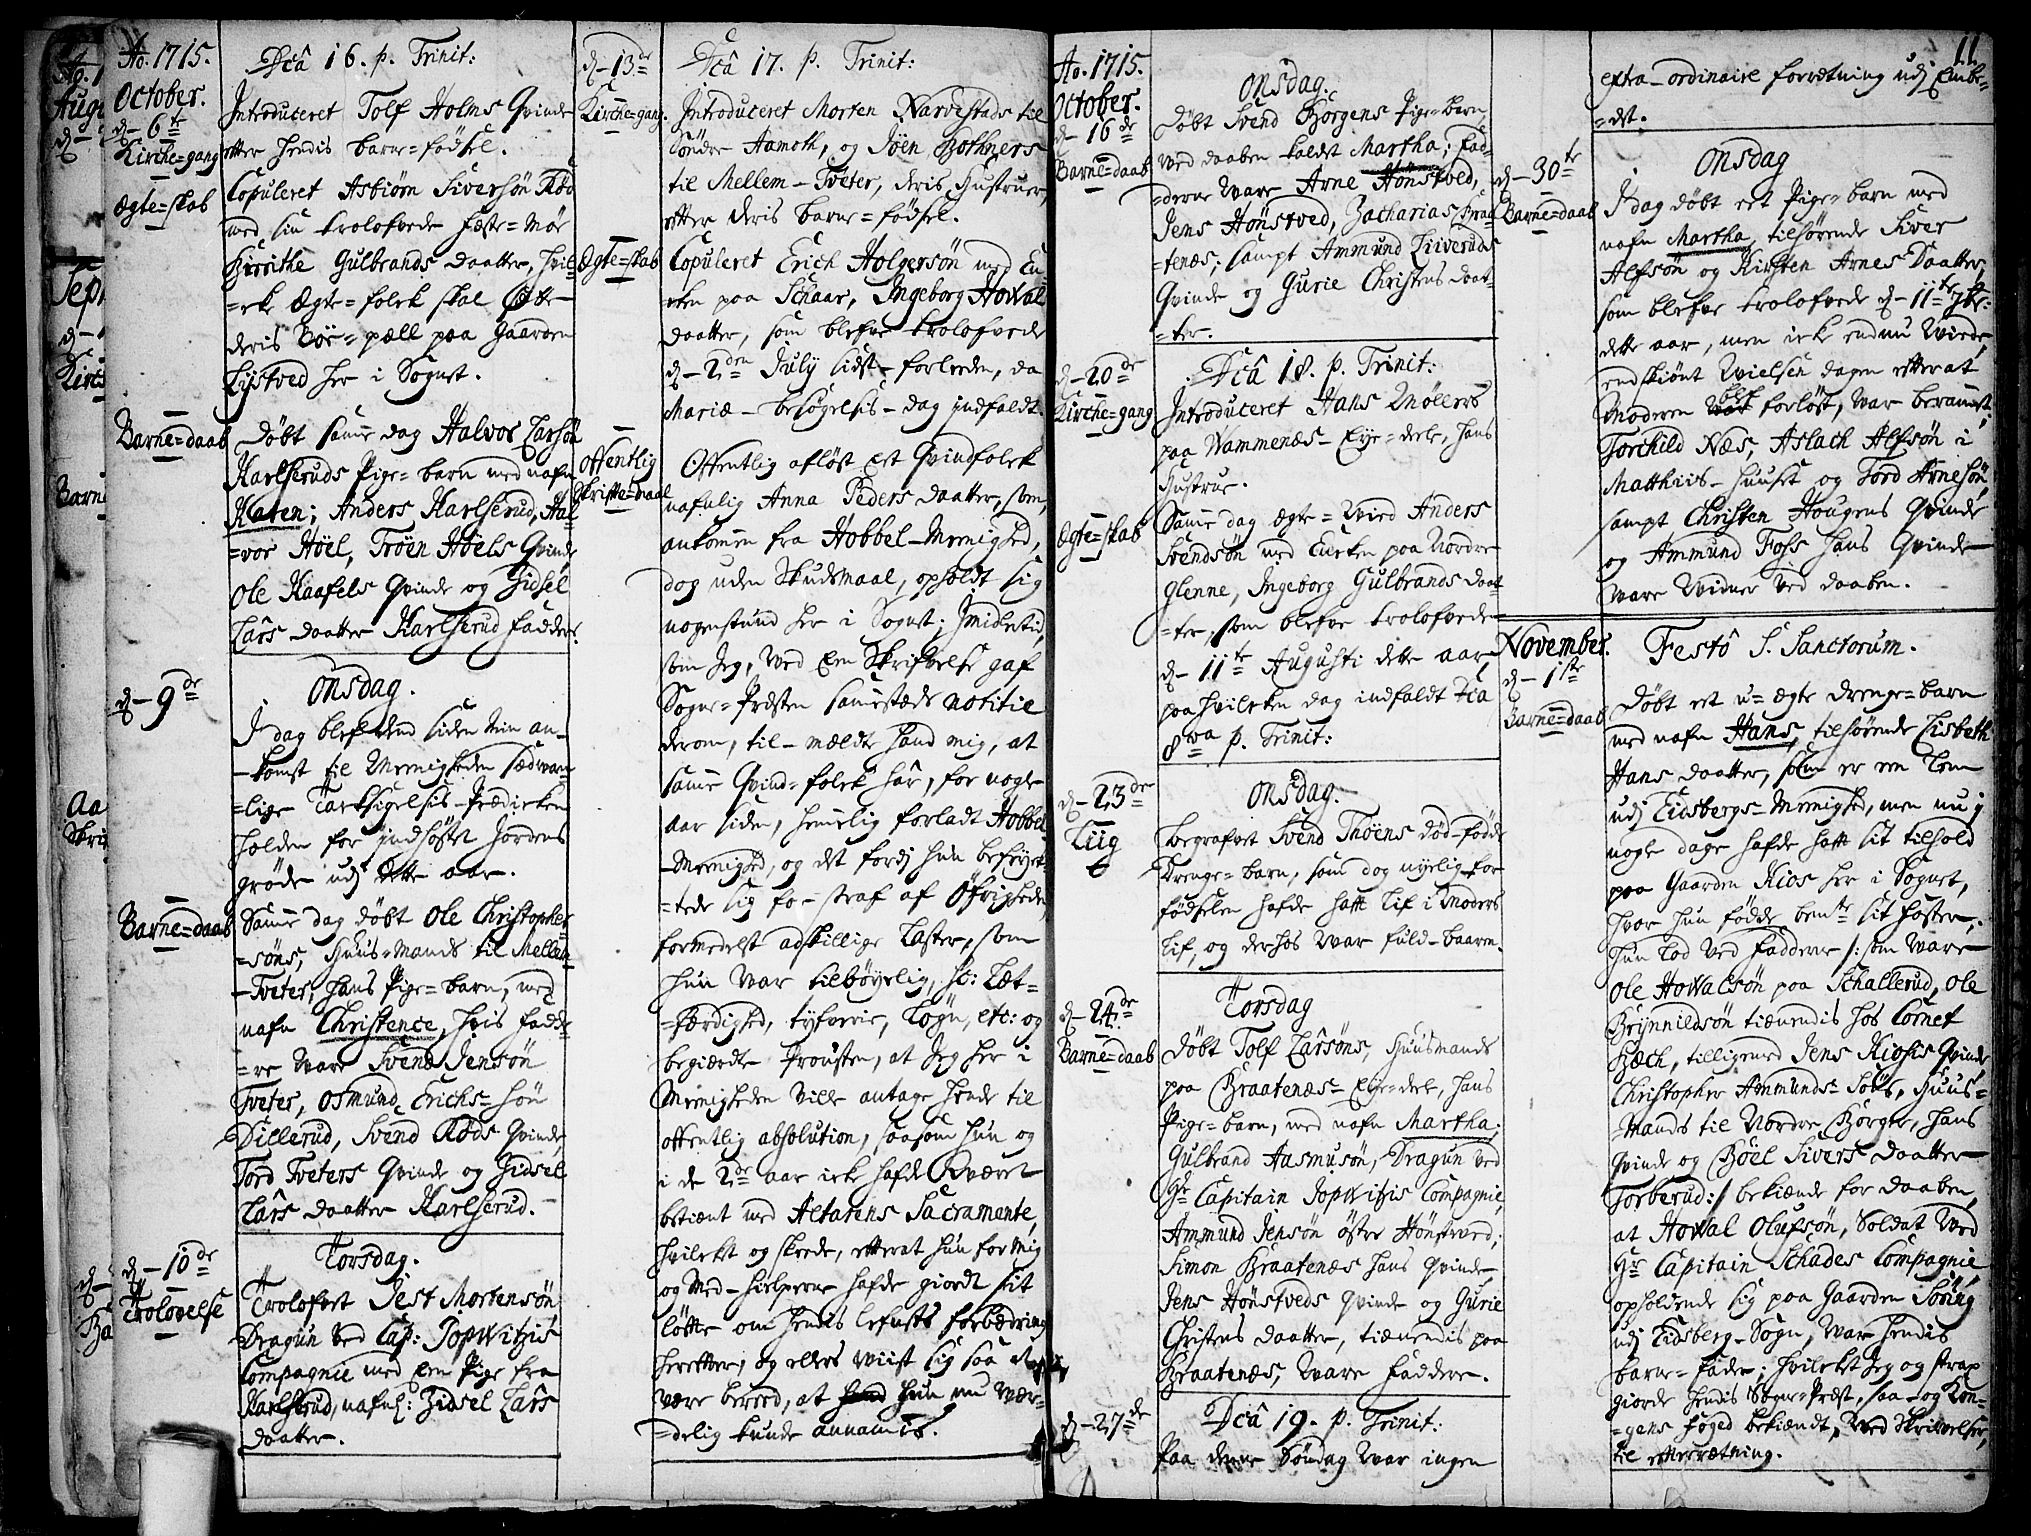 Ao. 1715.
October.
d. 6te
Kirche=gang
Ægte=skab
Dcâ 16. p. Trinit:
Introduceret Tolf Holms Qvinde
efter hendis barne=födsel.
Copuleret Asbiörn Siversön Röd
med sin trolofvede Fæste=Möe
Birithe Gulbrands daatter, hvil=
=cke Ægte=folck skal sætte
deris Boe=pæll paa Gaarden
Lystved her i Sognet.
Barne=daab
Döbt samme dag Halvor Larsön
Karlseruds Pige=barn med nafn
Karen; Anders Karlserud, Hal=
=vor Höel, Tröen Höels Qvinde
Ole Kaafels Qvinde og Zidsel
Lars daatter Karlserud faddere.
d. 9de
Onsdag.
I dag blef den siden min an=
=komst til Meenigheden sædvan=
=lige Tacksigelsis-Prædicken
holden for indhöstet Jordens
gröde udj dette aar.
Barne=daab
Samme dag döbt Ole Christopher
=söns, Huus-Mands til Mellem
-Tveter, hans Pige=barn, med
nafn Christence, hvis fadde=
=re vare Svend Jensön
Tveter, Osmund Erichs=sön
Dillerud, Svend Röds Qvinde,
Tord Tveters Qvinde og Zidsel
Lars daatter Karlserud.
d. 10de
Trolovelse
Torsdag.
Trolofvet Jest Mortensön
Dragun ved Cap: Jopwitzis
Compagnie med een Pige fra
Karlserud, nafnl: Zidsel Lars
daatter.
d. 13de
Kirche=gang.
Dcâ 17. p. Trinit:
Introduceret Morten Narvestads til
Söndre Aamoth, og Jöen Bothners
til Mellem-Tveter, deris Hustruer,
efter deris barne=födsel.
Ægte=skab
Copuleret Erich Holgersön med En
cken paa Schaar, Ingeborg Howal
daatter, som blefve trolofvede
d. 2den July sidst-forleden, da
Mariæ-besögelsis-dag indfaldt.
Offentlig
skrifte=maal
Offentlig aflöst eet Qvindfolck
nafnlig Anna Peders daatter, som,
ankommen fra Hobbel-Meenighed,
dog uden Skudsmaal, opholdt sig
nogenstund her i Sognet; Imidlertid,
som Jeg, ved een Skrifvelse gaf
Sogne-Præsten sammestæds notitie
derom, til-mældte hand mig, at
samme Qvind=folck har, for nogle
aar siden, hemmelig forladt Hobbel
-Meenighed, og det fordj hun befryct
=tede sig for straf af Öfvrigheden
formedelst adskillige laster, som
hun var tilböyelig, sc: Læt=
=færdighed, tyfverie, Lögn, etc: og
begiærede Prousten, at Jeg her i
Meenigheden ville antage hende til
offentlig absolution, saasom hun og
i de 2de aar icke hafde været
betient med Altarens Sacramente,
hvilcket og skeede, efterat hun for mig
og Med-hielperne hafde giordt sit
löfte om hendis lefnets forbedring
herefter, og ellers viist sig saa at
være bereed, at hun nu vær=
=delig kunde annamis.
Ao. 1715.
October.
d. 16de
Barne=daab
Onsdag.
Döbt Svend Börgens Pige=barn,
ved daaben kaldet Martha; fad=
=derne vare Arne Hönstved,
Jens Hönstved, Zacharias Braa
=tenæs; sampt Ammund Liiveruds
Qvinde og Gurie Christens daat=
=ter.
d. 20de
Kirche=gang
Dcâ 18. p. Trinit:
Introduceret Hans Möllers
paa Wammenæs-Eye=deele, hans
Hustrue.
Ægte=skab
Samme dag Ægte=vied Anders
Svendsön med Encken paa Nordre
Glenne, Ingeborg Gulbrands daat
=ter, som blefve trolofvede
d. 11te Augusti dette aar,
paa hvilcken dag indfaldt Dca
8va p. Trinit:
d. 23de
Liig
Onsdag.
Begrafvet Svend Thöens död=födde
Drenge=barn, som dog nyelig for
födselen hafde hatt Lif i Moders
Lif, og derhos var fuld-baaren.
d. 24de
Barne=daab
Torsdag
Döbt Tolf Larsöns, Huusmands
paa Braatenæs=Eye=deele, hans
Pige=barn, med nafn Martha;
Gulbrand Aasmusön, Dragun ved
Hr Capitain Jopwitzis Compagnie,
Ammund Jensön öfter Hönstved;
Simon Braatenæs hans Qvinde,
Jens Hönstveds Qvinde og Gurie
Christens daatter, tiænendis paa
Braatenæs, vare faddere.
d. 27de
Dcâ 19. p. Trinit:
Paa denne Söndag var ingen
11
extra-ordinaire forretning udj Embe=
=det.
d. 30te
Barne=daab
Onsdag
I dag döbt eet Pige=barn med
nafn Martha, tilhörende Siver
Alfsön og Kirsten Arnes Daatter,
som blefve trolofvede d. 11te 7br:
dette aar, men icke endnu viede,
endskiönt Vielsen dagen efterat
Moderen blef forlöst, var berammet.
Torchild Næs, Aslach Alfsön i
Matthiis-huuset og Tord Arnesön
sampt Christen Hougens Qvinde
og Ammund Foss hans Qvinde
vare Vidner ved daaben.
November.
d. 1ste
Barne=daab
Festô S. Sanctorum.
Döbt eet u=ægte drenge=barn
med nafn Hans, tilhörende Lisbeth
Hans daatter, som er een Lem
udj Eidsbergs-Meenighed, men nu i
nogle dage hafde hatt sit tilhold
paa Gaarden Kios her i Sognet,
hvor hun födde bemte sit foster.
Hun lod ved fadderne /: som vare
Ole Howalsön paa Schallerud, Ole
Brijnnildsön tiænendis hos Cornet
Bæch, tilligemed Jens Kiosis Qvinde
Christopher Ammunds-Söns, Huus=
=Mands til Nordre Börger, hans
Qvinde og Böel Sivers daatter
Torberud:/ bekiænde for daaben,
at Howal Olufsön, Soldat ved
Hr Capitain Schades Compagnie
opholdende sig paa Gaarden Söring
udj Eidsberg-Sogn, var hendis
barne=fader; hvilcket Jeg og strax
giorde hendis Sogne=Præst, saa og Kon=
=gens foged bekiændt, ved Skrivelser,
til efterretning.